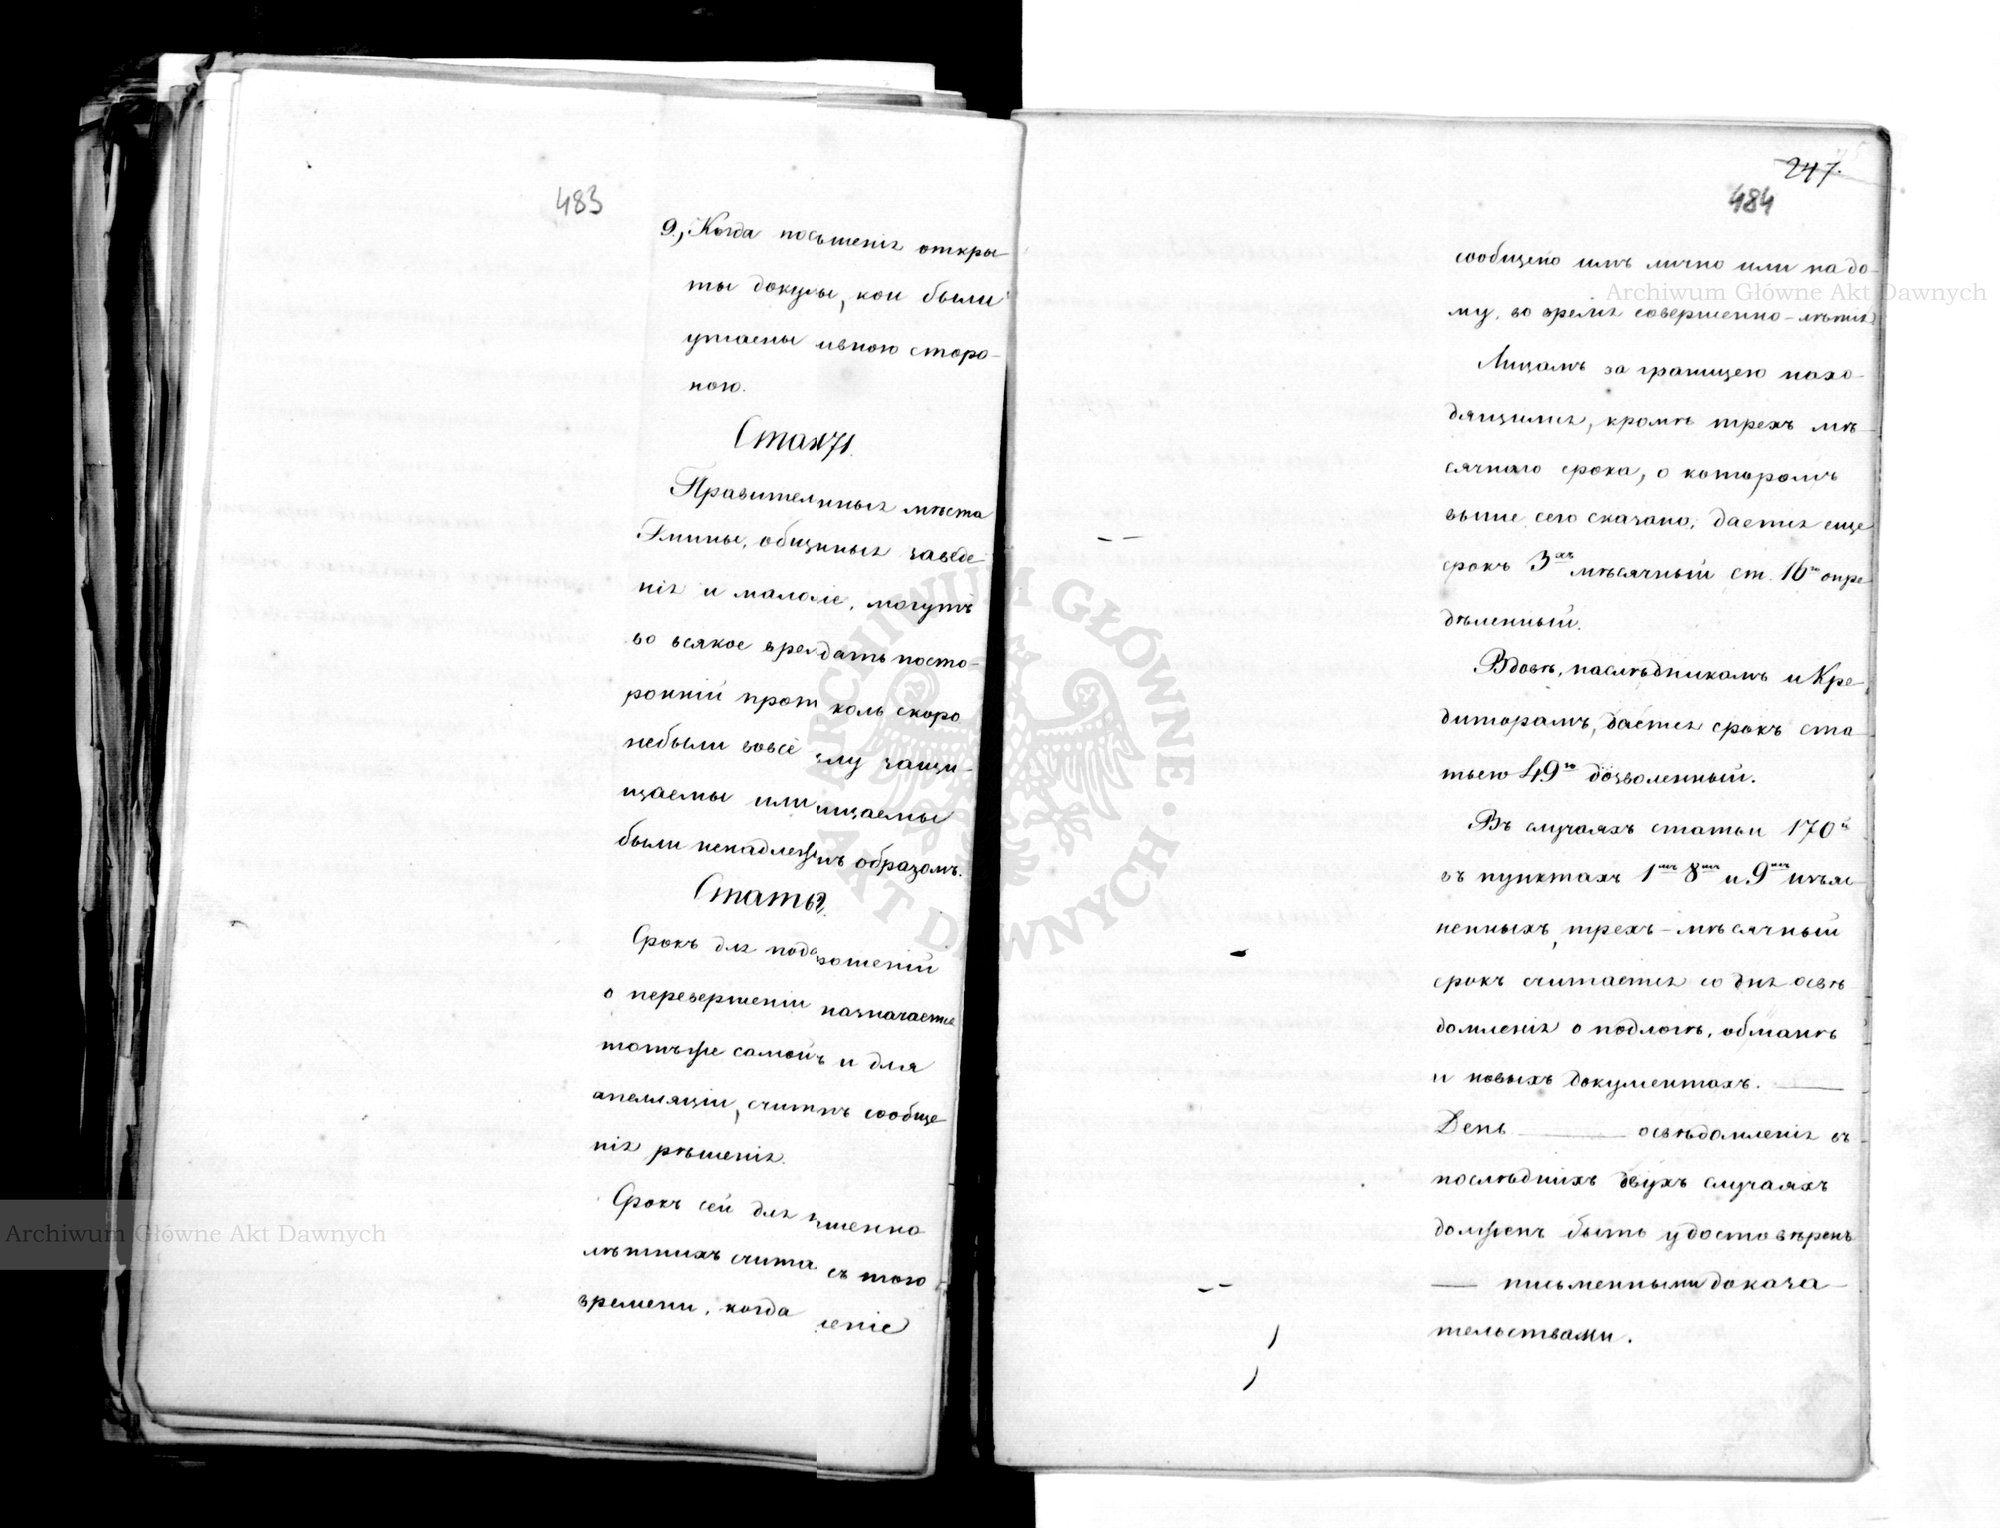 483
9., Когда посьмениѣ откры-
ты докуы, кои были
утаены ивною сторо-
ною.
Стая71.
Правителнныя мѣста
Гмины, общиныя заведе-
нія и малоліе, могутъ
во всякое вредать посто-
ронній прот коль скоро
небыли вовсе му защи-
щаемы или ищаемы
были ненадлежъ образомъ.
Статы2.
Срокъ для пода ошеній
о перевершеніи назначается
тотъже самой ъ и для
апелляціи, считъ сообще
нія рѣшенія.
Срокъ сей для шенно
лѣтнихъ счита съ того
времени, когда еніе
247.
484
сообщено имъ лично или на до-
му, во время совершенно-лѣтія
Лицамъ за границею нахо-
дящимся, кромѣ трехъ мѣ-
сячнаго срока, о которомъ
выше сего сказано, дается еще
срокъ 3хъ мѣсячный ст. 16ю опре
дѣленный.
Вдовѣ, наслѣдникамъ и Кре-
диторамъ, дается срокъ ста-
тьею 49ю дозволенный.
Въ случаяхъ статьи 170й
въ пунктахъ 1мъ 8мъ и 9мъ изъяс
ненныхъ, трехъ-мѣсячный
срокъ считается со дня освѣ
домленія о подлогѣ, обманѣ
и новыхъ документахъ. —
День — освѣдомленія въ
послѣднихъ двухъ случаяхъ
долженъ быть удостовѣренъ
— письменными доказа-
тельствами.
Archiwum Główne Akt Dawnych
Archiwum Główne Akt Dawnych
ARCHIWUM GŁÓWNE · AKT DAWNYCH ·